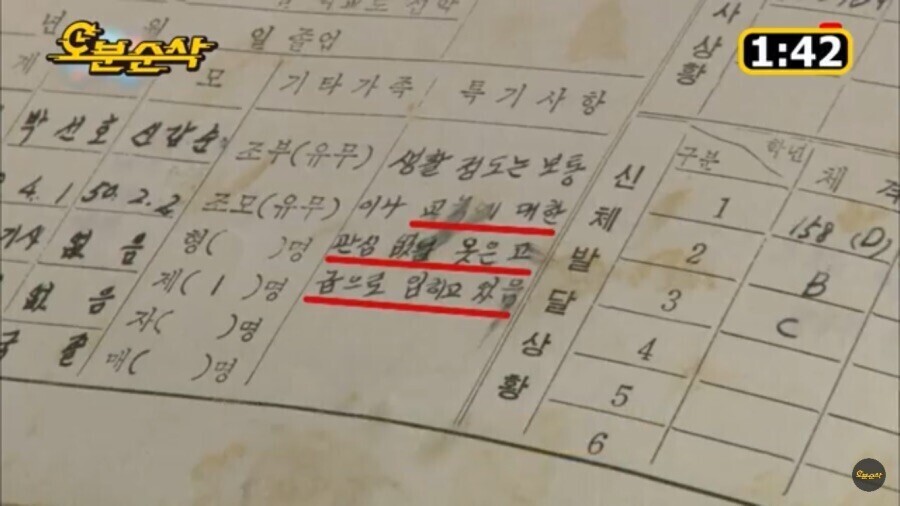 오분순삭
1:42
년 월 일 졸업
모 기타가족 특기사항
박선호 신갑순 조부(유무) 생활 정도는 보통
4.1 50.2.2 조모(유무) 이나 대한
없음 형( )명 관심 없날 옷은 고
없음 제(1)명 급으로 입히고 있음
자( )명
매( )명
사상황
신체발달상황
구분 학년 체격
1 158 (D)
2 B
3 C
4
5
6
오분순삭